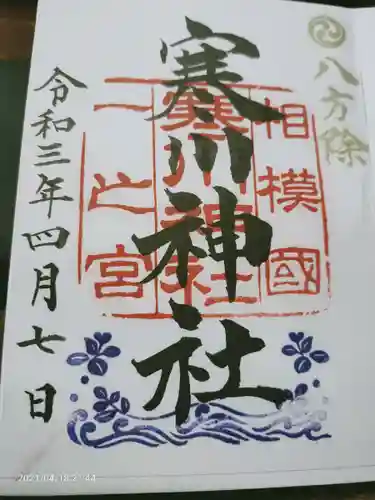 八方除
寒川神社
相模國
寒川神社
一之宮
令和三年四月七日